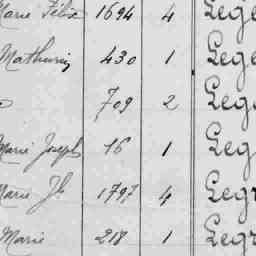 Marie Félix 1694 4 Lege
Mathurin 430 1 Lege
709 2 Leg
Marie Joseph 16 1 Leg
Marie Jh 1797 4 Legr
Marie 218 1 Legr